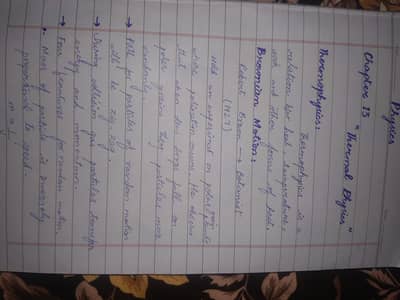 Physics
Chapter 13 "Thermal Physics"
Thermophysics:
Thermophysics is a
relation b/w heat, temperature,
work and other forms of heat.
Brownian Motion:
Robert Brown → Botanist
(1827)
was an experiment on pollen grains
while pollination occurs. He observe
that when dew drops fall on
pollen grains they particles move
randomly.
→ Path for particles of random motion
will be zig zag.
→ During collision gas particles transfer
energy and momentum.
→ Four for random motion.
• Mass of particle is inversely
proportional to speed.